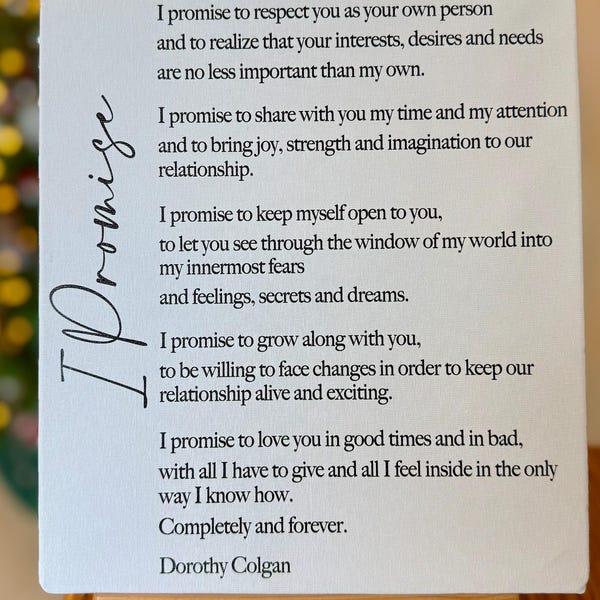 I Promise
I promise to respect you as your own person
and to realize that your interests, desires and needs
are no less important than my own.
I promise to share with you my time and my attention
and to bring joy, strength and imagination to our
relationship.
I promise to keep myself open to you,
to let you see through the window of my world into
my innermost fears
and feelings, secrets and dreams.
I promise to grow along with you,
to be willing to face changes in order to keep our
relationship alive and exciting.
I promise to love you in good times and in bad,
with all I have to give and all I feel inside in the only
way I know how.
Completely and forever.
Dorothy Colgan